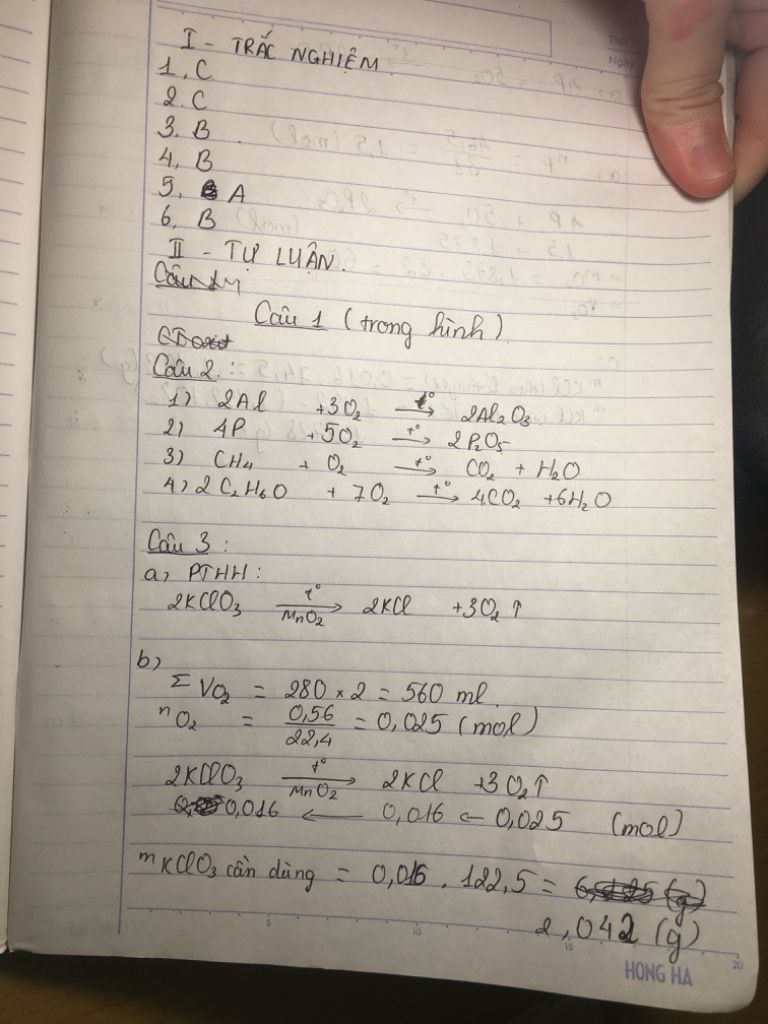 I - TRẮC NGHIỆM
1, C
2. C
3. B
4, B
5, A
6, B
II - TỰ LUẬN.
Câu 1 (trong hình)
Câu 2:
1) 2Al + 3O₂ →(t°) 2Al₂O₃
2) 4P + 5O₂ →(t°) 2P₂O₅
3) CH₄ + O₂ →(t°) CO₂ + H₂O
4) 2C₂H₆O + 7O₂ →(t°) 4CO₂ + 6H₂O
Câu 3:
a, PTHH:
2KClO₃ →(t°, MnO₂) 2KCl + 3O₂ ↑
b)
Σ VO₂ = 280 × 2 = 560 ml.
nO₂ = 0,56/22,4 = 0,025 (mol)
2KClO₃ →(t°, MnO₂) 2KCl + 3O₂ ↑
0,016 ← 0,016 ← 0,025 (mol)
mKClO₃ cần dùng = 0,016 . 122,5 =
2,042 (g)
5 10 15 20
HONG HA